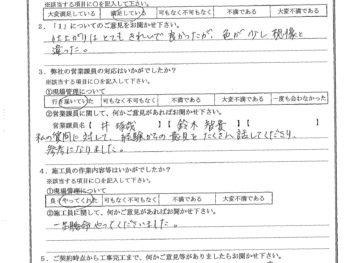 ※該当する項目に○を記入して下さい。
大変満足している 満足している 可もなく不可もなく 不満である 大変不満である
2.「1」についてのご意見をお聞かせ下さい。
仕上がりはとてもきれいで良かったが、色が少し想像と
違った。
3.弊社の営業課員の対応はいかがでしたか?
※該当する項目に○を記入して下さい。
①現場管理について
行き届いていた 可もなく不可もなく 不満である 大変不満である 一度も会わなかった
②営業課員に関して、何かご意見があればお聞かせ下さい。
営業課員名【 井 】【 鈴木智貴 】
私の質問に対して、経験からの意見をたくさん話してくださり、
参考になりました。
4.施工員の作業内容等はいかがでしたか?
※該当する項目に○を記入して下さい。
①現場管理について
良くやってくれた 可もなく不可もなく 不満である 大変不満である
②施工員に関して、何かご意見があればお聞かせ下さい。
一生懸命やってくださいました。
5.ご契約時点から工事完工まで、何かご意見等がありましたらお聞かせ下さい。